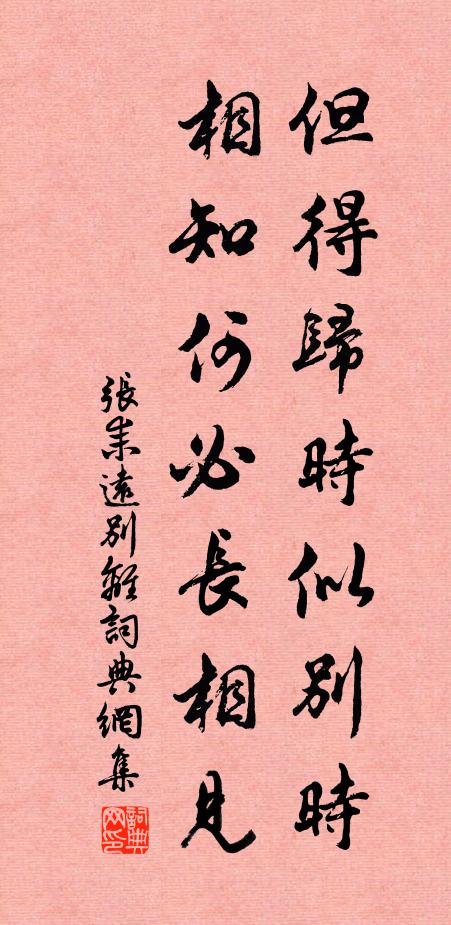 但得歸時似別時
相知何必長相見
張耒遠別離詞典網集
詞典网印